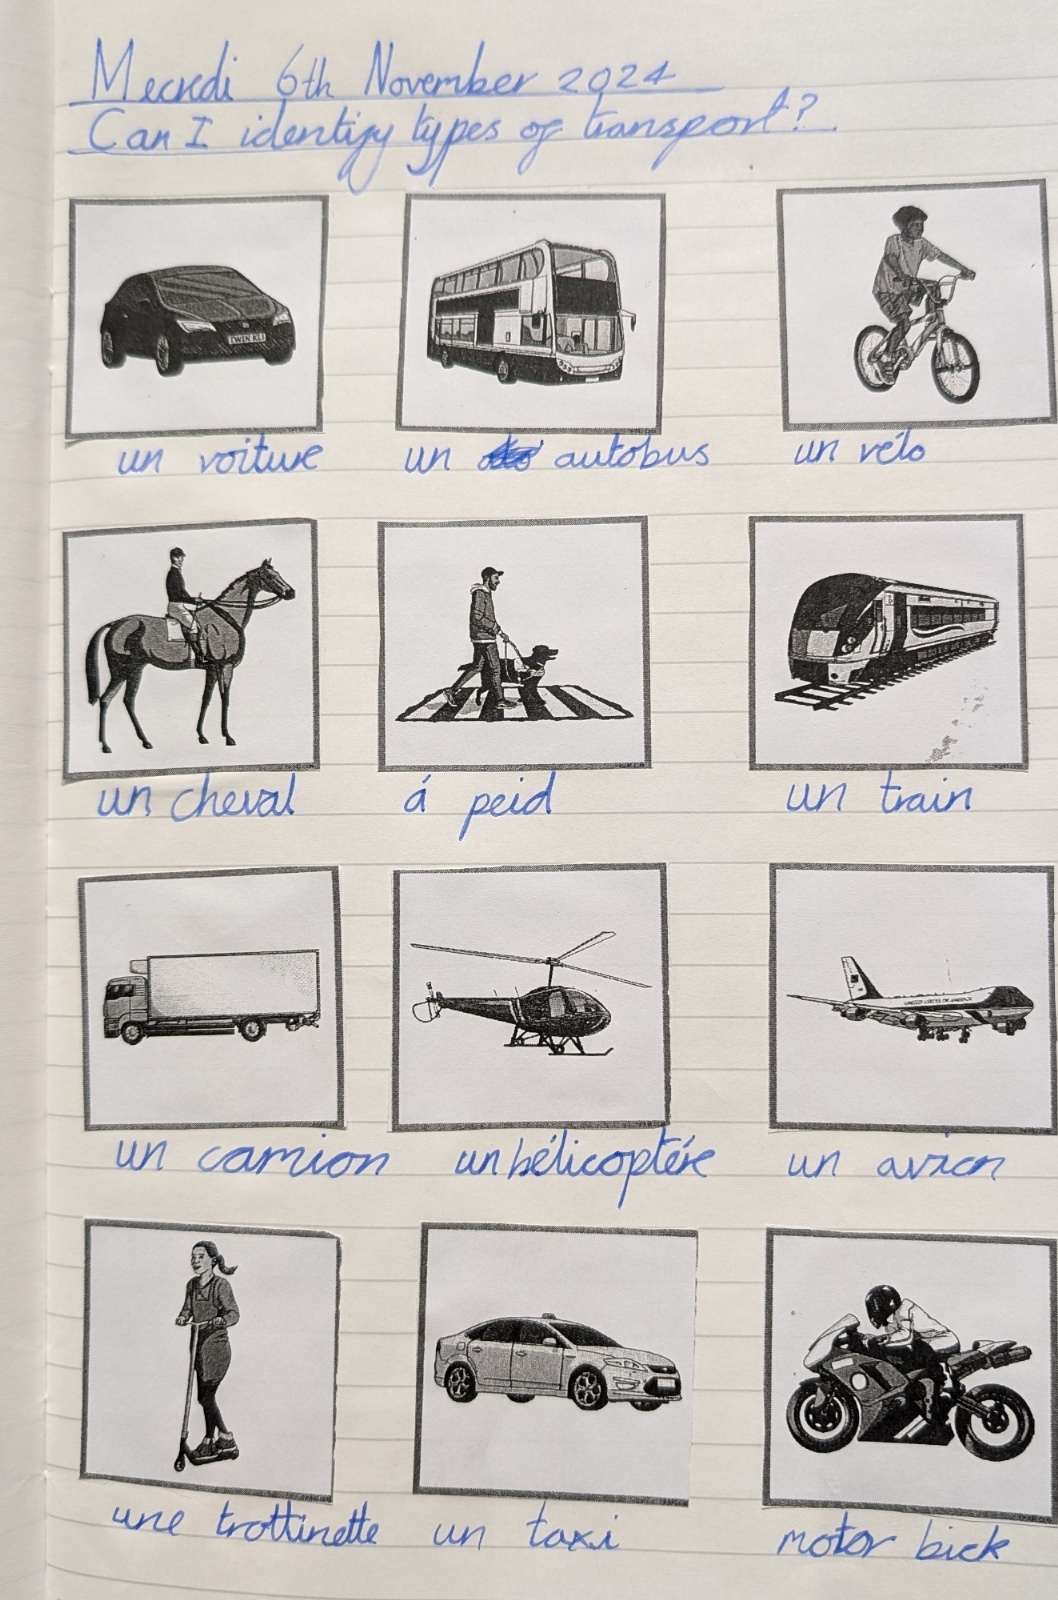 Mecredi 6th November 2024
Can I identify types of transport?
un voiture
un autobus
un vélo
un cheval
á peid
un train
un camion
un hélicoptére
un avion
une trottinette
un taxi
motor bick